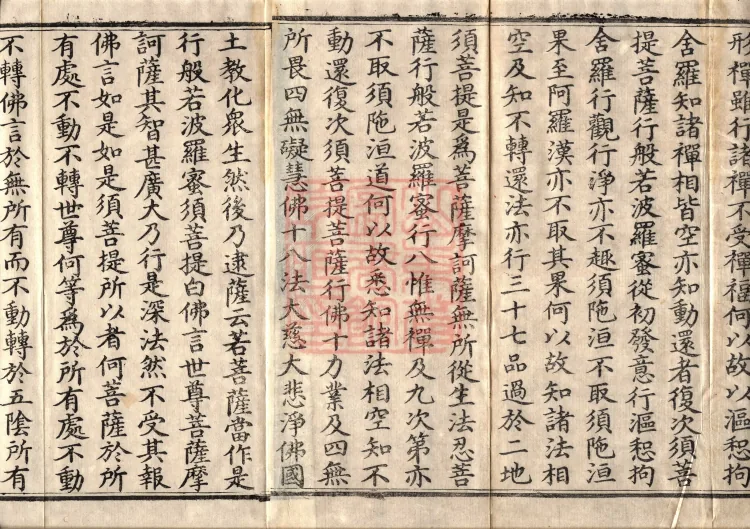 形禪雖行諸禪不受禪福何以故以漚惒拘
舍羅知諸禪相皆空亦知動還者復次須菩
提菩薩行般若波羅蜜從初發意行漚惒拘
舍羅行觀行淨亦不趣須陁洹不取須陁洹
果至阿羅漢亦不取其果何以故知諸法相
空及知不轉還法亦行三十七品過於二地
須菩提是為菩薩摩訶薩無所從生法忍菩
薩行般若波羅蜜行八惟無禪及九次第亦
不取須陁洹道何以故悉知諸法相空知不
動還復次須菩提菩薩行佛十力業及四無
所畏四無礙慧佛十八法大慈大悲淨佛國
土教化衆生然後乃逮薩云若菩薩當作是
行般若波羅蜜須菩提白佛言世尊菩薩摩
訶薩其智甚廣大乃行是深法然不受其報
佛言如是如是須菩提所以者何菩薩於所
有處不動不轉世尊何等為於所有處不動
不轉佛言於無所有而不動轉於五陰所有